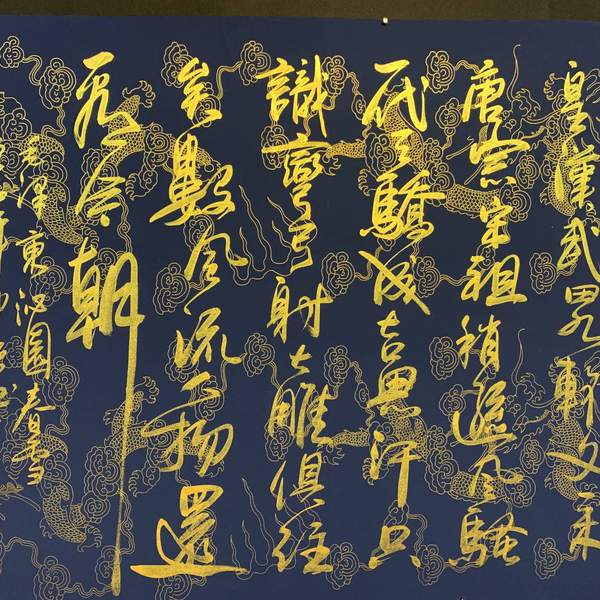 皇漢武畧輸文采
唐宗宋祖稍遜風騷
代天驕成吉思汗只
識彎弓射大雕俱往
矣數風流人物還
看今朝
毛澤東沁園春雪